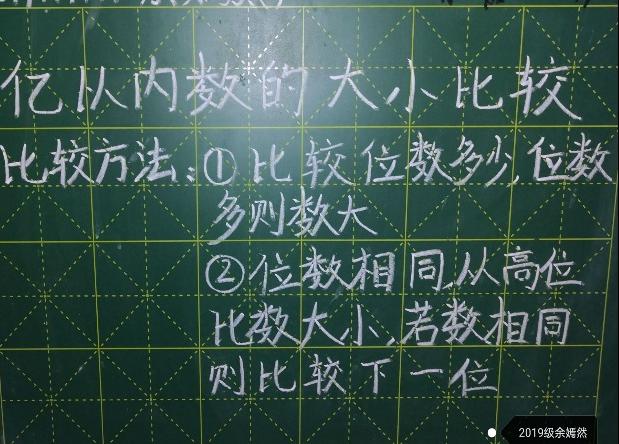 亿以内数的大小比较
比较方法:①比较位数多少,位数
多则数大
②位数相同,从高位
比数大小,若数相同
则比较下一位
2019级余嫣然